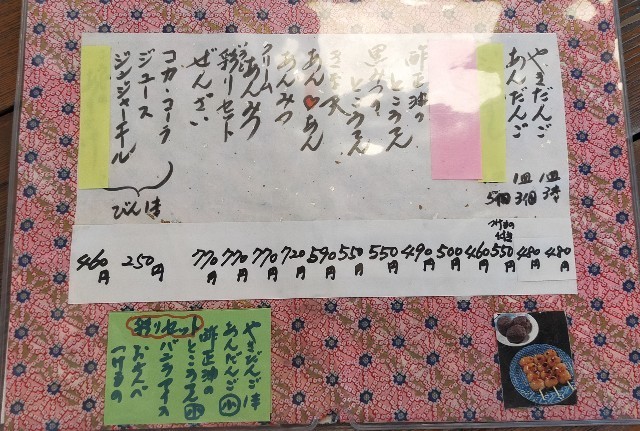 やきだんご 1皿3本 480円
あんだんご 1皿3個 480円
5個 550円
460円
500円
酢正油のところてん 490円
黒みつところてん 550円
550円
あん♥あん 590円
あんみつ 720円
クリームあんみつ 770円
彩りセット 770円
ぜんざい 770円
コカ・コーラ
ジュース 250円
ジンジャーエール
びん 460円
彩りセット
やきだんご1本
あんだんご小
酢正油の
ところてん小
バニラアイス
おせんべ
つけもの